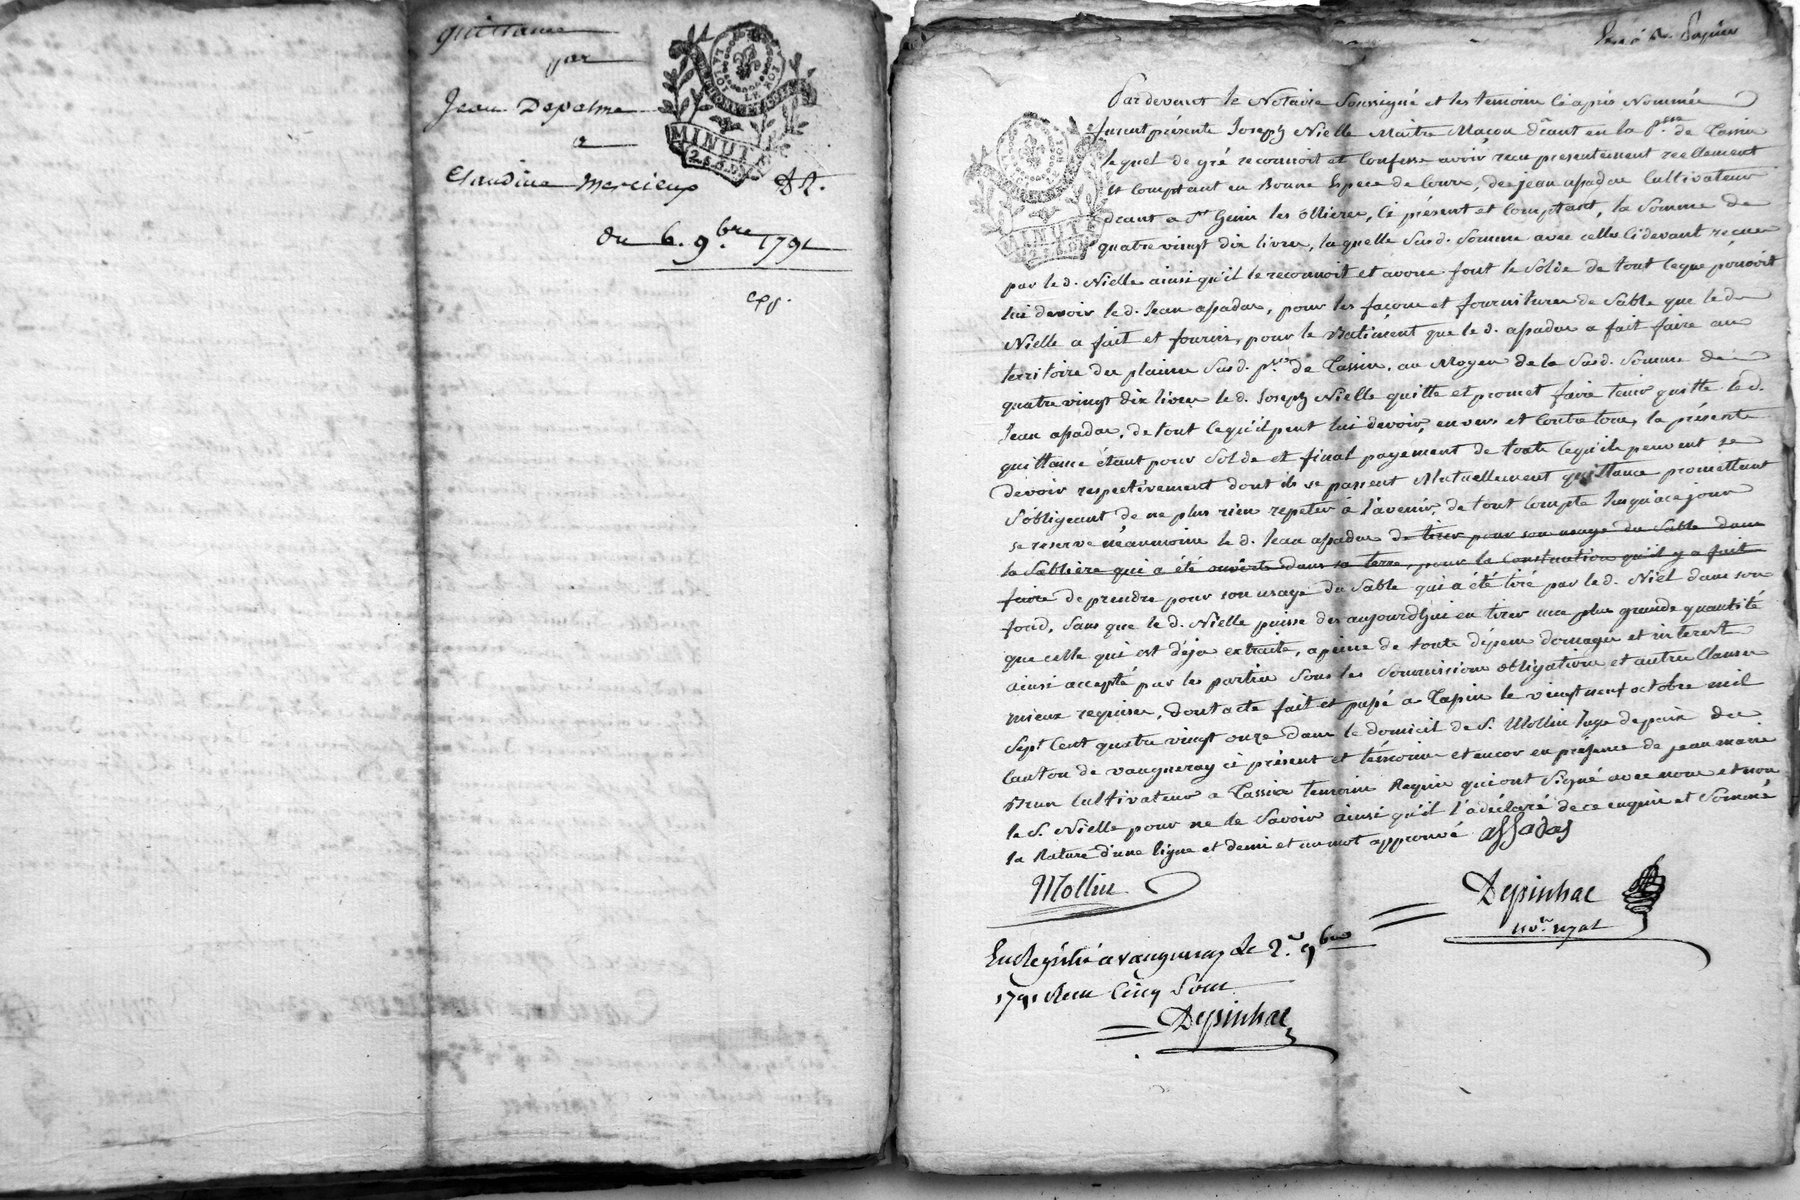 quittance
par
Jean Depalme
a
Claudine Mercieux
du 6. 9.bre 1791
exp.
LA LOI LE ROI
MINUTE
Pardevant le Notaire Soussigné et les temoins Ci apres Nommés
furent présents Joseph Nielle Maitre Maçon dt. en la p.sse de Tassin
lequel de gré reconnoit et Confesse avoir recu presentement reellement
et Comptant en Bonne Espece de Cours, de jean assadas Cultivateur
a St. Genis les Ollieres, Ci présent et Comptant, la Somme de
quatre vingt dix livres, laquelle Susd. Somme avec celles Cidevant recues
par le d. Nielle ainsi qu'il le reconnoit et avoue font le Solde de tout Ceque pouvoit
lui devoir le d. Jean assadas, pour les façons et fournitures de Sable que le d.
Nielle a fait et fournis, pour le Batiment que le d. assadas a fait faire au
territoire des plaines Susd. p.sse de Tassin, au Moyen de la Susd. Somme de
quatre vingt dix livres le d. Joseph Nielle quitte et promet faire tenir quitte le d.
Jean assadas, de tout Cequ'il peut lui devoir, envers et Contre tous, la présente
quittance étant pour Solde et final payement de toute Cequ'ils peuvent se
devoir respectivement dont ils se passent Mutuellement quittance promettant
S'obligeant de ne plus rien repeter à l'avenir, de tout Compte Jusqu'à ce jour
se reserve néanmoins le d. Jean assadas de tirer pour son usage du Sable dans
la Sablière qui a été ouverte dans sa terre, pour la Construction qu'il y a fait
faire de prendre pour son usage du Sable qui a été tiré par le d. Niel dans son
fond, Sans que le d. Nielle puisse des aujourd'hui en tirer une plus grande quantité
que celle qui est déja extraite, a peine de toute dépens domages et interest
ainsi accepté par les parties Sous les Soumissions obligations et autres Clauses
mieux requises, dont acte fait et passé a Tassin le vingt neuf octobre mil
Sept Cent quatre vingt onze dans le domicil de S. Mollin Juge de paix du
Canton de vaugneray ci présent et témoins et encor en présence de jean marie
Brun Cultivateur a Tassin temoins Requis qui ont Signé avec nous et non
le S. Nielle pour ne le Savoir ainsi qu'il l'a déclaré de ce enquis et Sommé
la Rature d'une ligne et demi et un mot approuvé assadas
Mollin
Depinhac
no.re royal
Enregistré a vaugneray le 2. 9bre
1791 Recu Cinq Sous
Depinhac